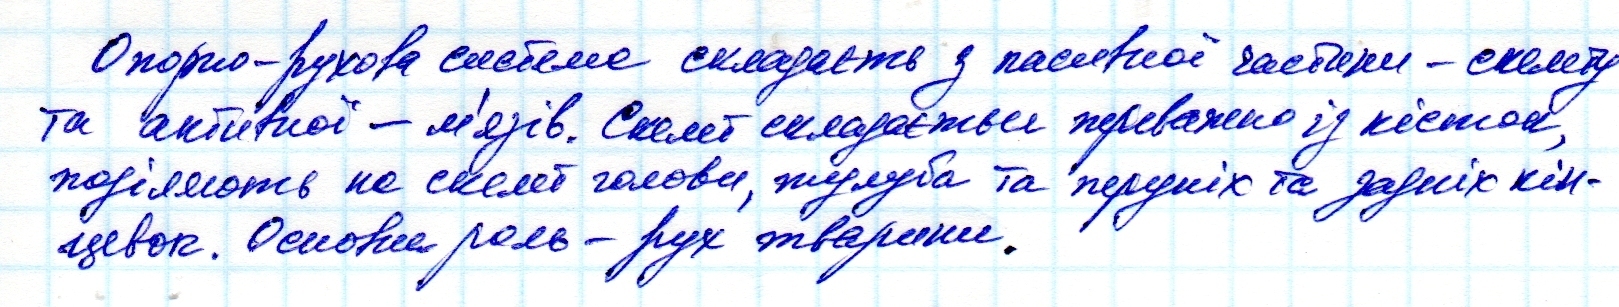 Опорно-рухова система складаєть з пасивної частини – скелету
та активної – м'язів. Скелет складається переважно із кісток,
поділяють на скелет голови, тулуба та передніх та задніх кін-
цівок. Основна роль – рух тварини.